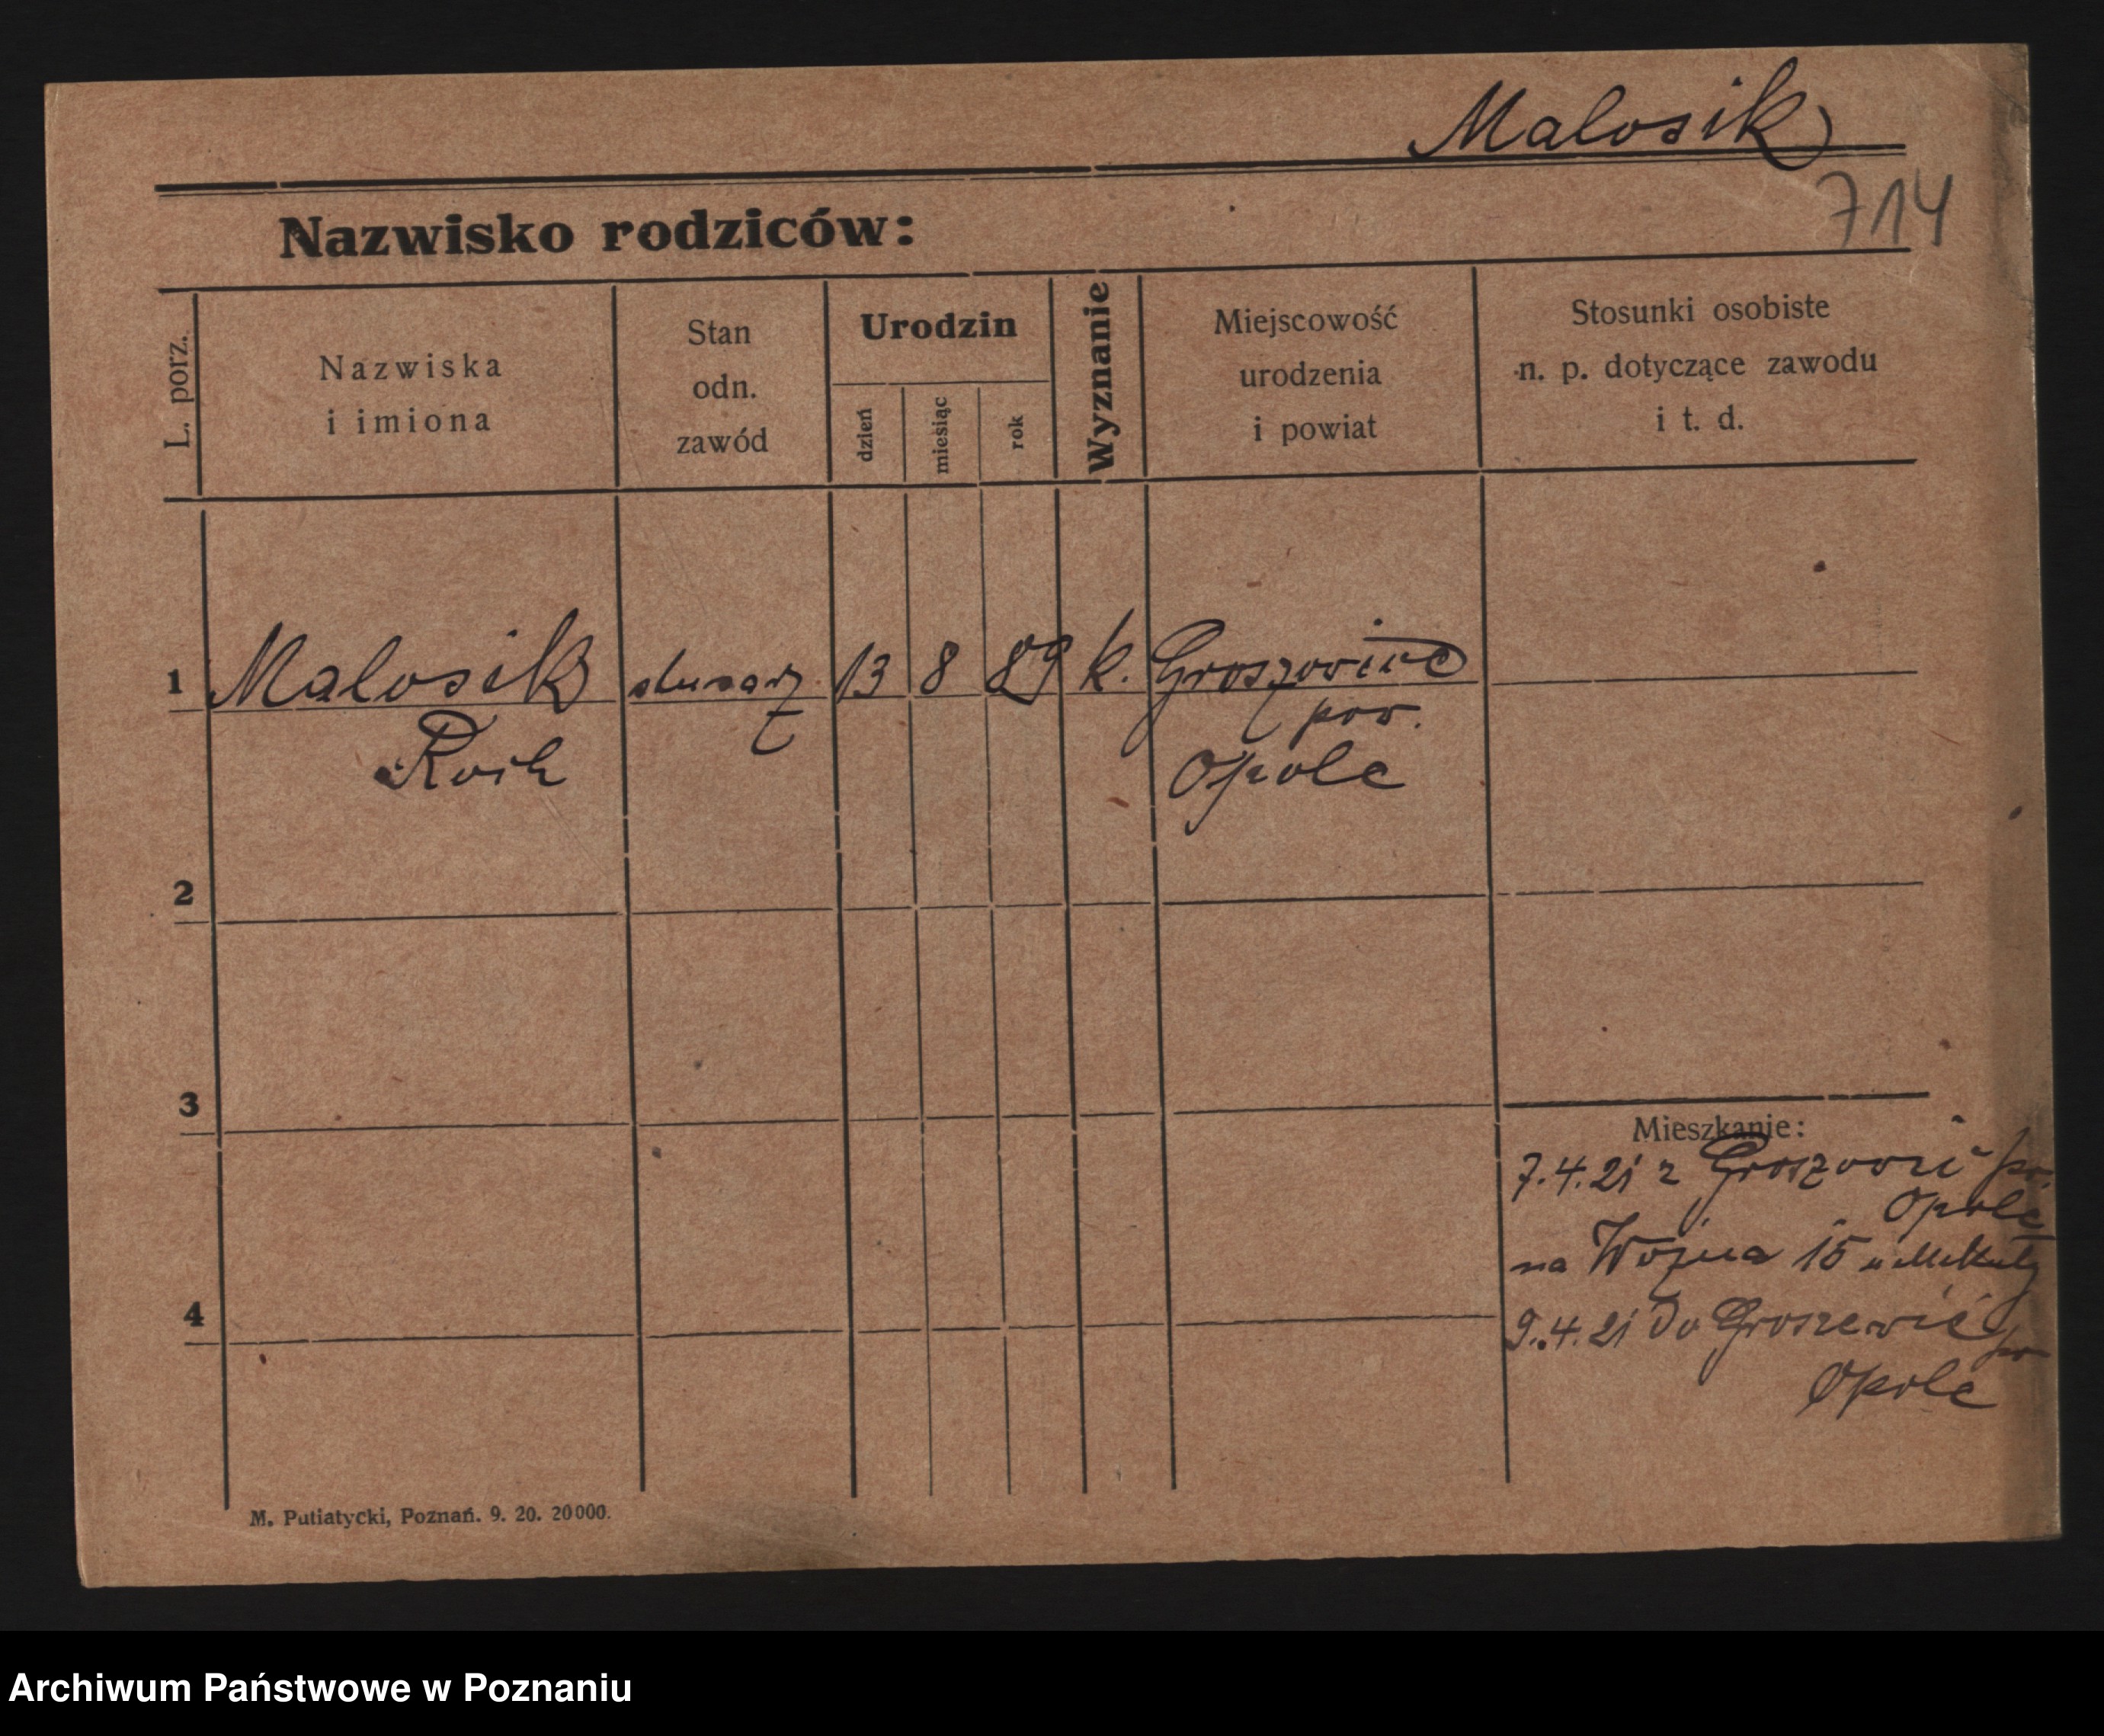 Malosik
714
Nazwisko rodziców:
L. porz.
Nazwiska
i imiona
Stan
odn.
zawód
Urodzin
dzień
miesiąc
rok
Wyznanie
Miejscowość
urodzenia
i powiat
Stosunki osobiste
n. p. dotyczące zawodu
i t. d.
1 Malosik ślusarz 13 8 89 k. Groszowice
pow.
Roch Opole
2
3
Mieszkanie:
7.4.21 z Groszowic po.
Opole
na Wojna 15 u
4
9.4.21 do Groszowic po
Opole
M. Putiatycki, Poznań. 9. 20. 20000.
Archiwum Państwowe w Poznaniu